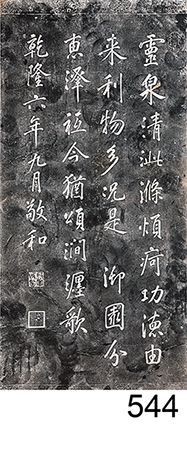 靈泉清泚滌煩疴功德由
来利物多况是 御園分
惠澤祗今猶頌澗瀍歌
乾隆六年九月敬和
544